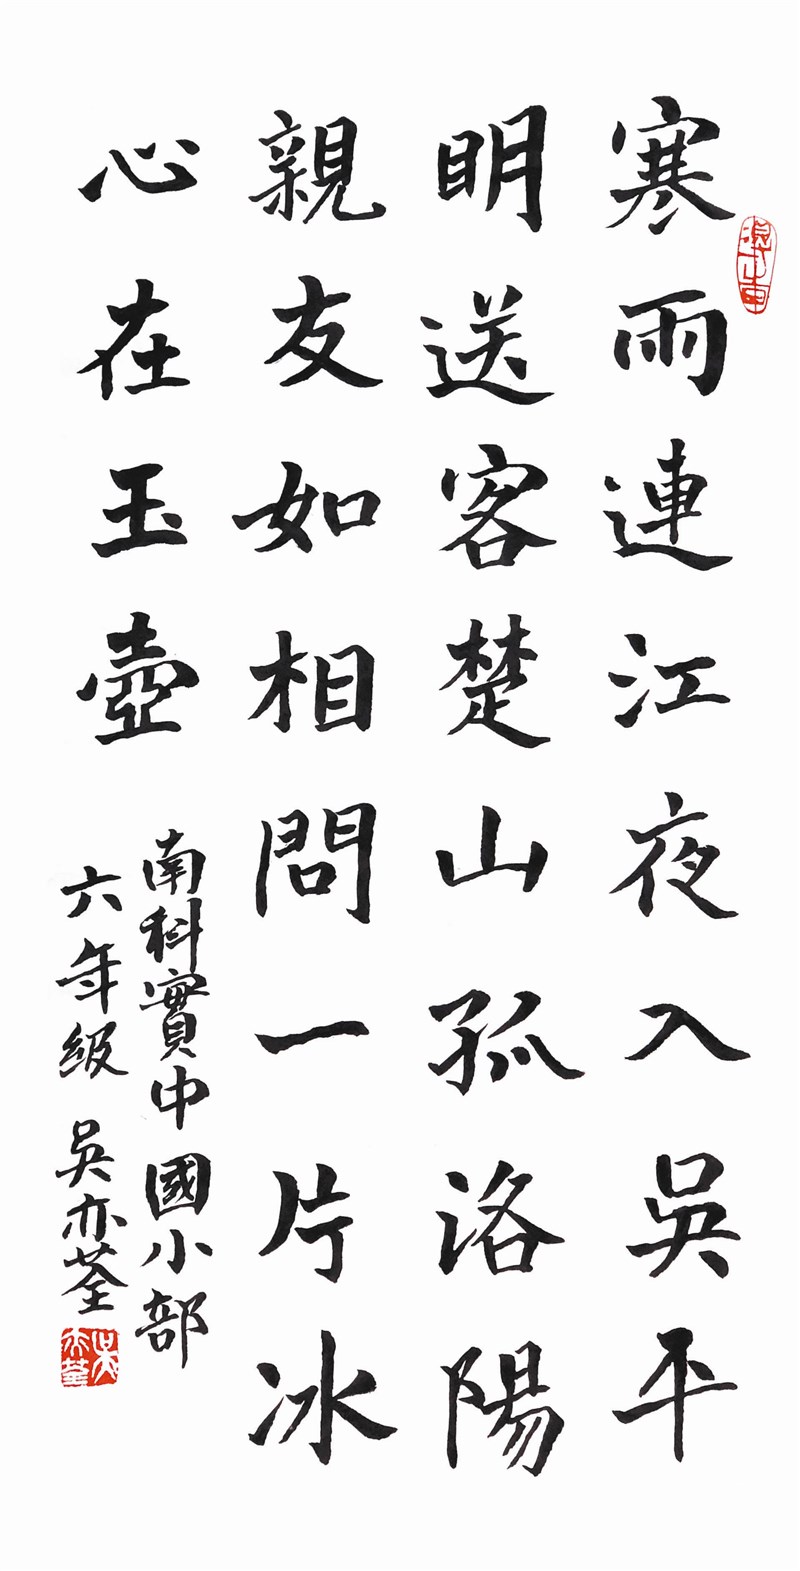 寒雨連江夜入吳平
明送客楚山孤洛陽
親友如相問一片冰
心在玉壺
南科實中國小部
六年級 吳亦荃